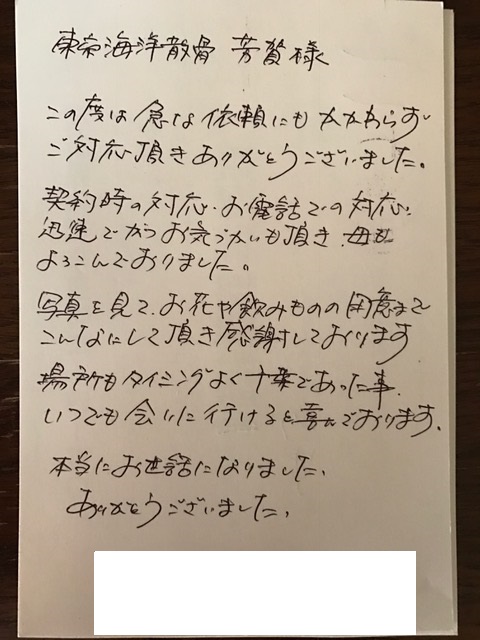 東京海洋散骨 芳賀様
この度は急な依頼にもかかわらず
ご対応頂きありがとうございました。
契約時の対応、お電話での対応、
迅速でかつお気づかいも頂き、母も
よろこんでおりました。
写真を見て、お花や飲みものの用意まで
こんなにして頂き感謝しております
場所もタイミングよく千葉であった事、
いつでも会いに行けると喜んでおります。
本当にお世話になりました、
ありがとうございました、